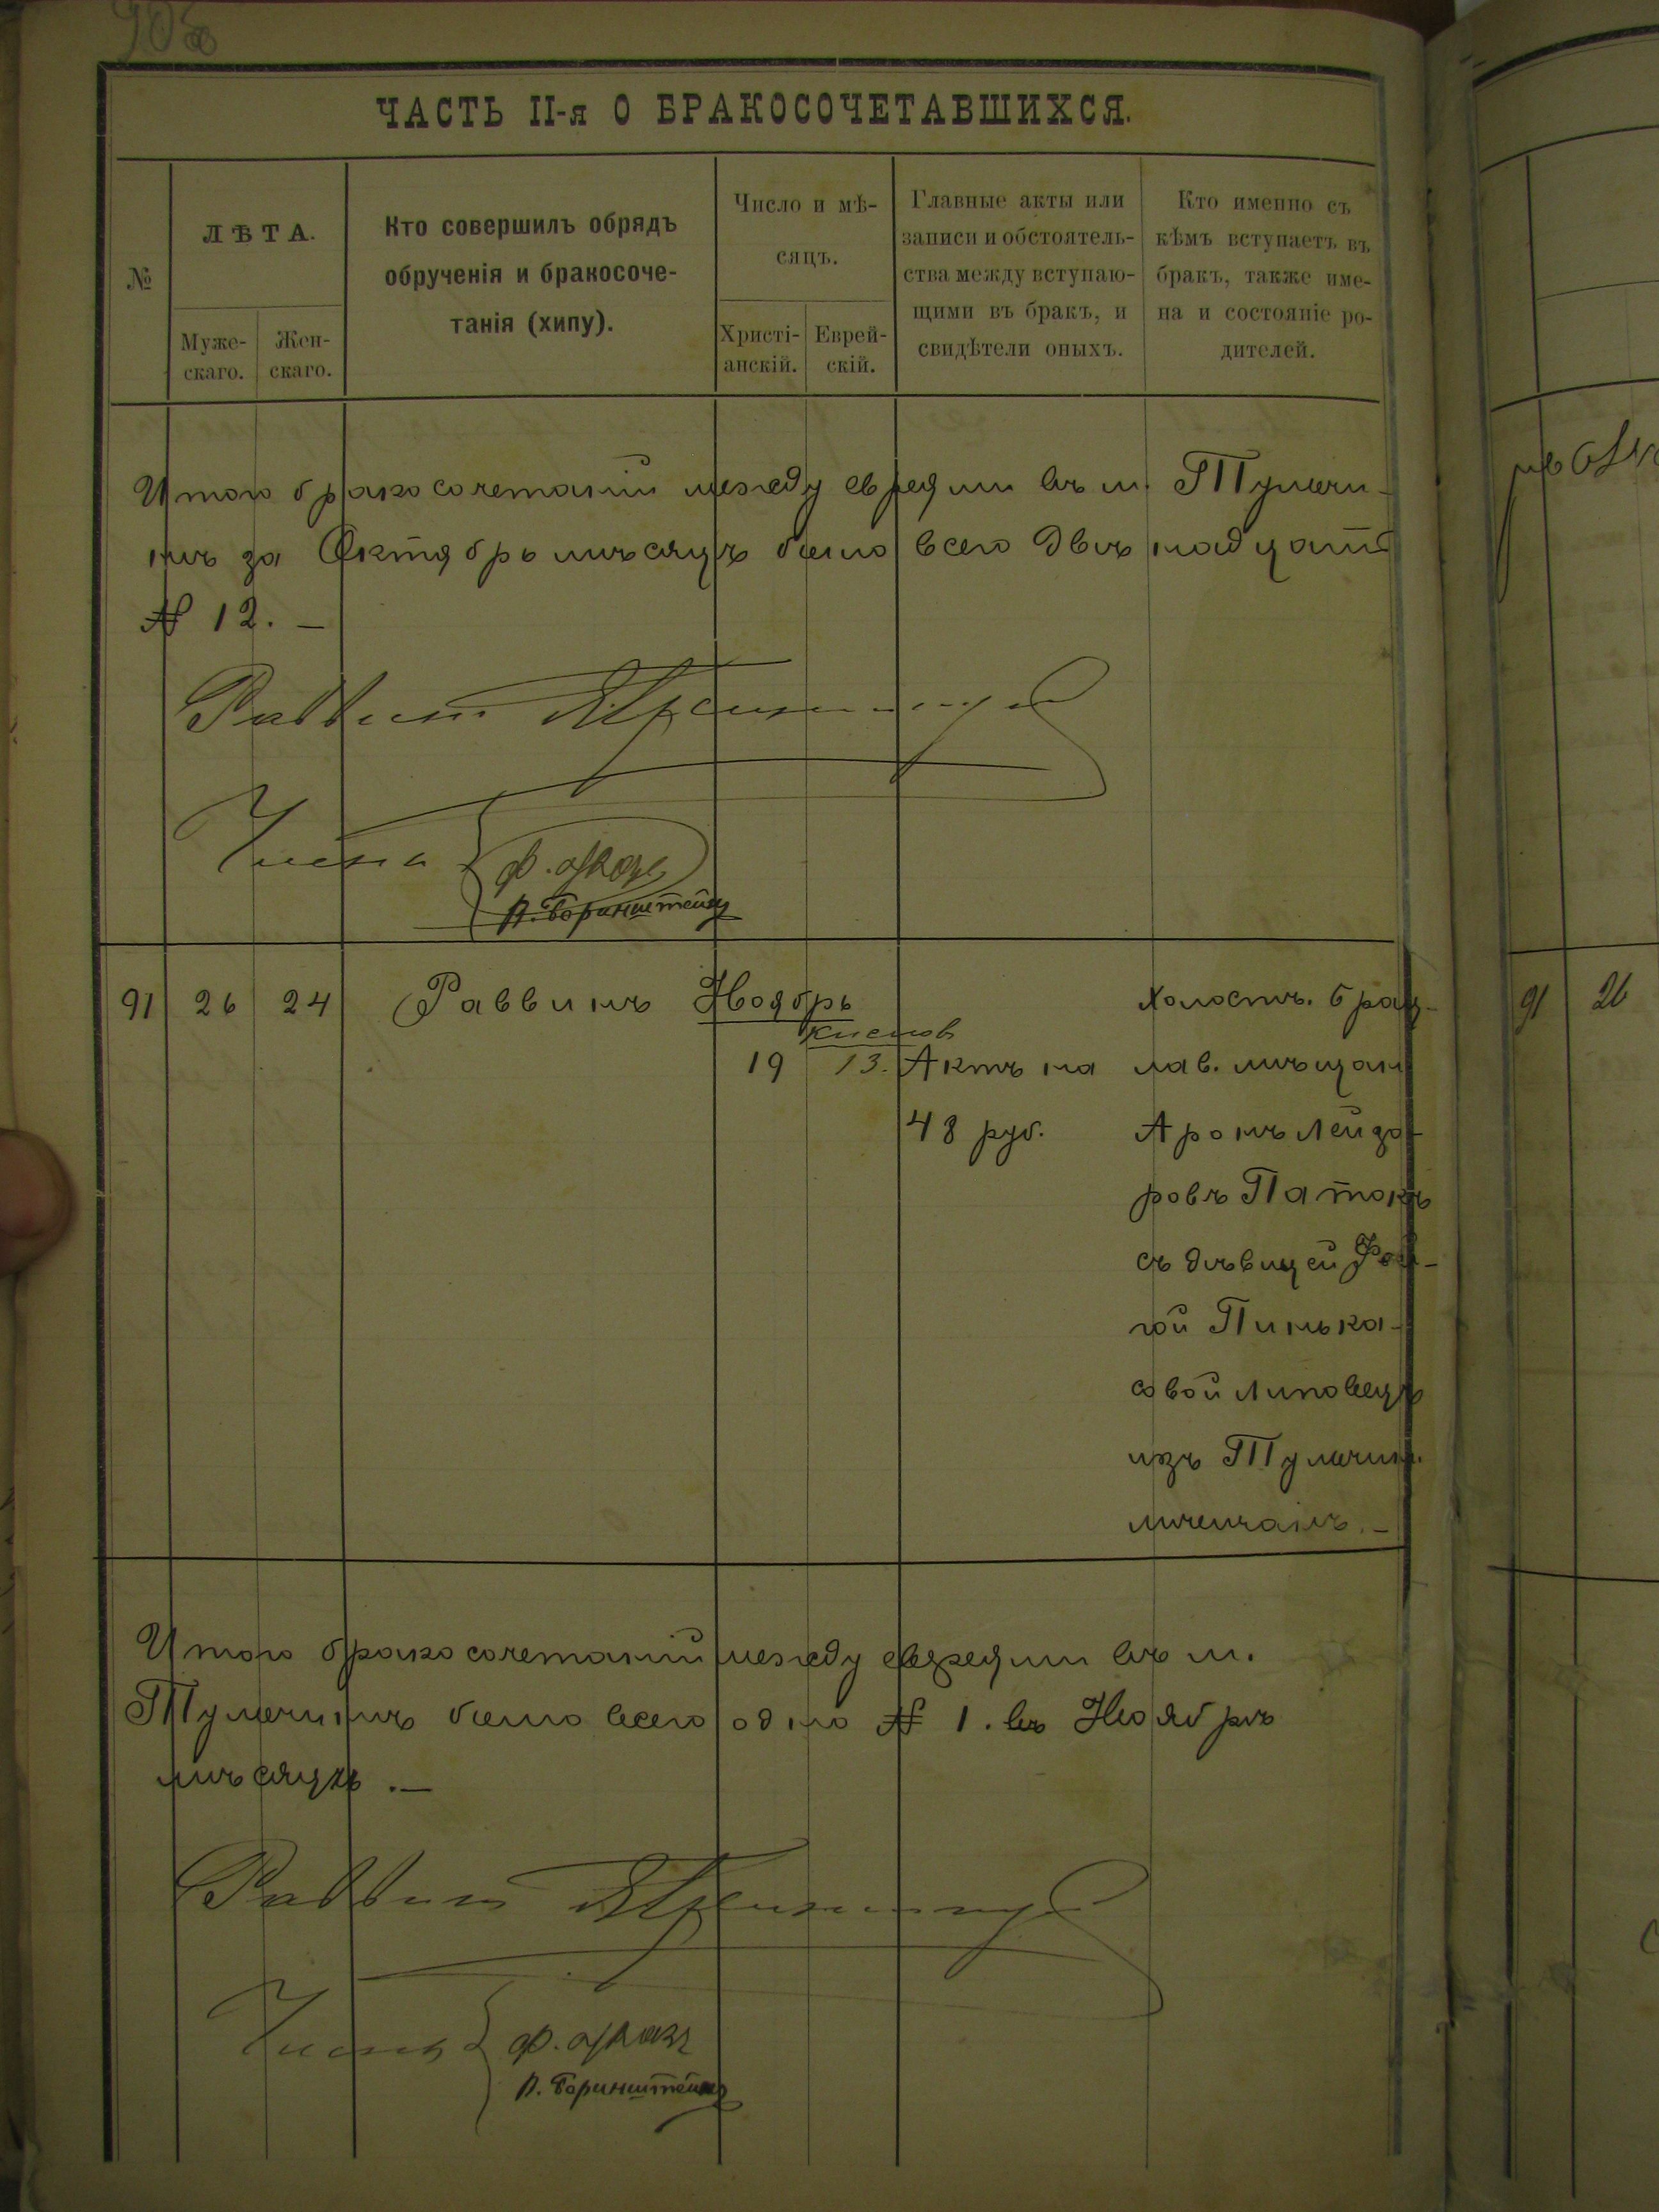 ЧАСТЬ II-я О БРАКОСОЧЕТАВШИХСЯ.
№
ЛѢТА.
Муже-
скаго.
Жен-
скаго.
Кто совершилъ обрядъ
обрученія и бракосоче-
танія (хипу).
Число и мѣ-
сяцъ.
Христі-
анскій.
Еврей-
скій.
Главные акты или
записи и обстоятель-
ства между вступаю-
щими въ бракъ, и
свидѣтели оныхъ.
Кто именно съ
кѣмъ вступаетъ въ
бракъ, также име-
на и состояніе ро-
дителей.
Итого бракосочетаній между евреями въ м. Тульчи-
нѣ за Октябрь мѣсяцъ было всего двѣнадцать
№ 12. —
Раввинъ
Члены
П. Боринштейнъ
91 26 24 Раввинъ Ноябрь Холостъ. Брац-
Кислов
19 13. Актъ на лав. мѣщан
48 руб. Аронъ Лейзо-
ровъ Патокъ
съ дѣвицей Фей-
гой Пинька-
совой Липовецъ
изъ Тульчин.
мѣщанъ. —
91 26
Итого бракосочетаній между евреями въ м.
Тульчинѣ было всего одно № 1. въ Ноябрѣ
мѣсяцѣ. —
Раввинъ
Члены
П. Боринштейнъ